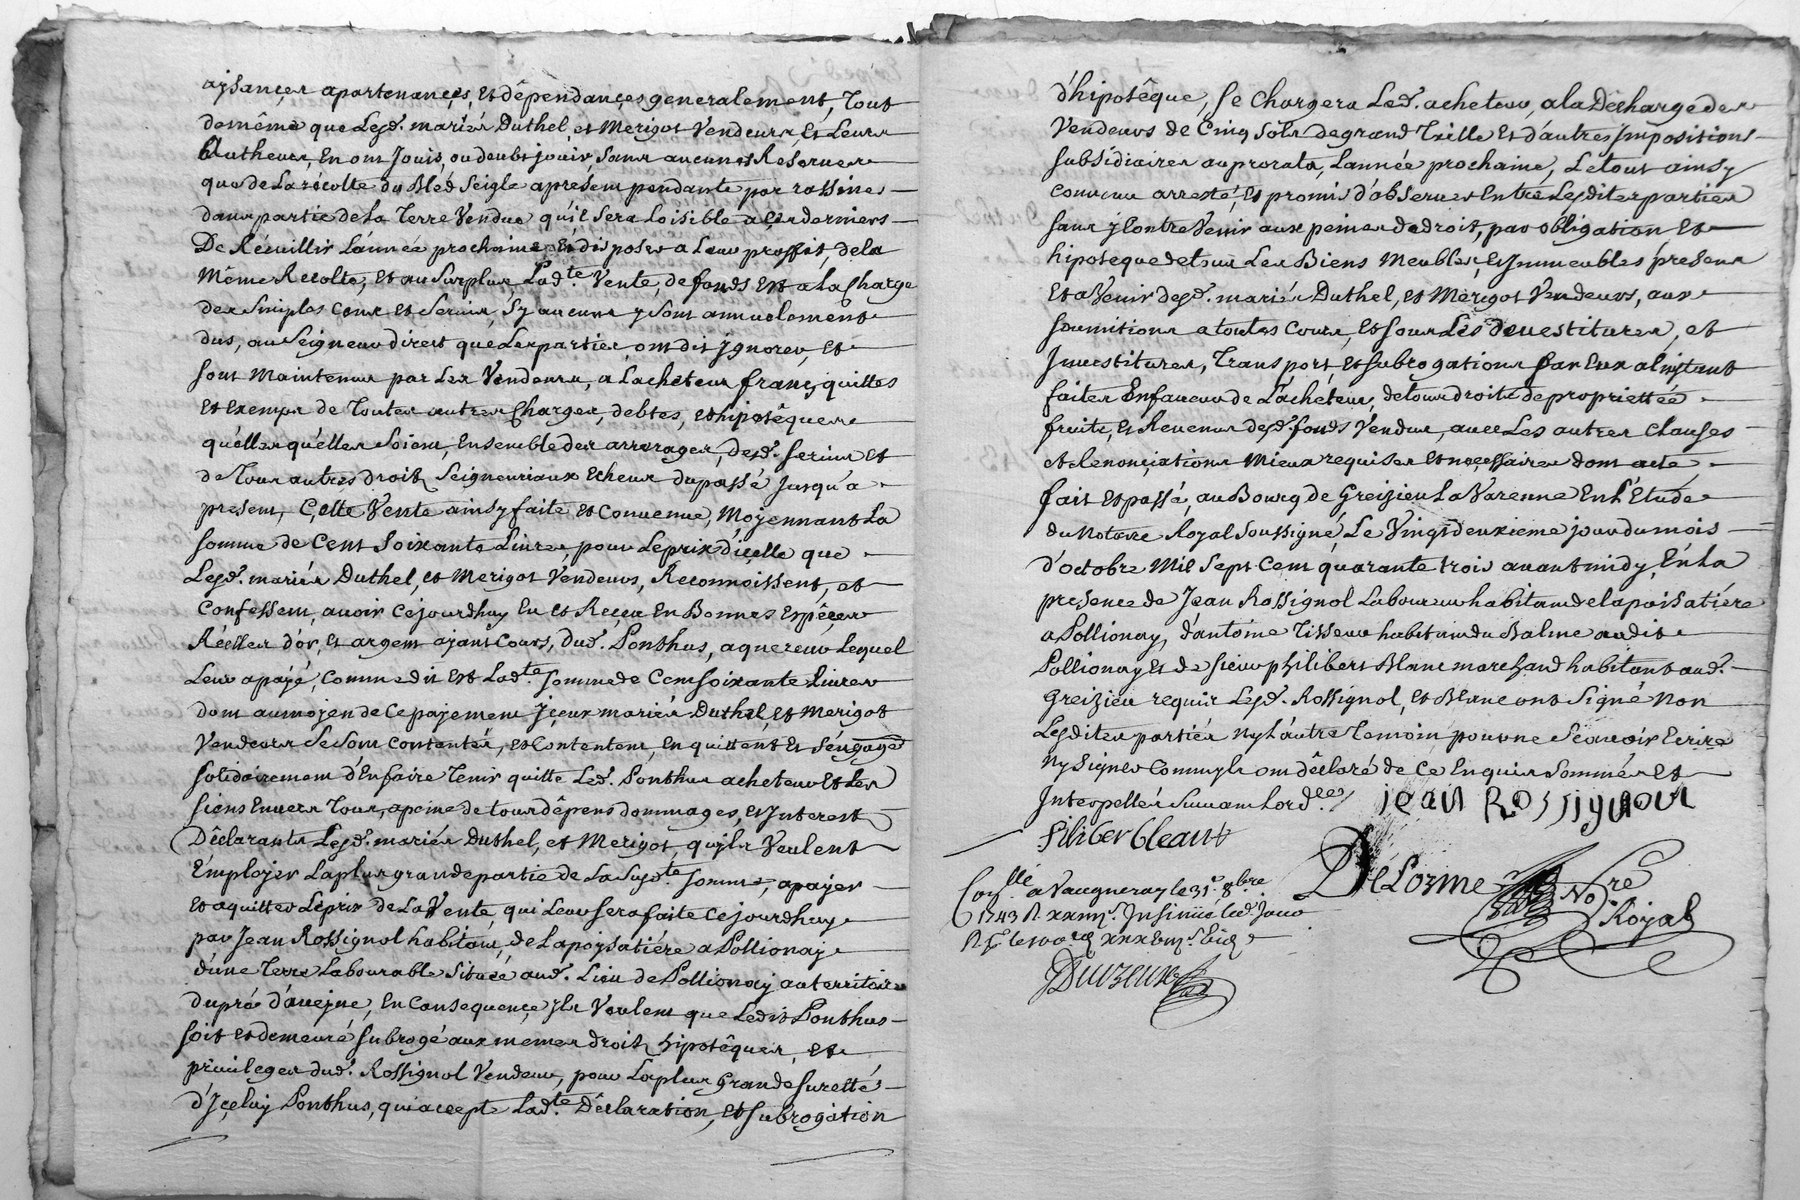 aysançes apartenançes, et dêpendançes generalement, Tout
de même que lesd. mariés Duthel, et Merigot Vendeurs, et Leurs
Autheurs, En ont Jouis, ou deub jouir, sans aucunes Reserves
que de La récolte du Bléd Seigle apresent pendante par rassines
dans partie de la Terre Vendue, qu'il sera Loisible a çes derniers
De Récuillir L'année prochaine et disposer a Leur proffit, de la
Même Recolte, et au Surplus, Lad.te Vente, de fonds Est a la Charge
des Simples Cens et Servis, S'y aucuns y sont annuelement
dus, au Seigneur direct que Les parties, ont dit Jgnorer, et
sont Maintenus par Les Vendeurs, a Lacheteur françs, quittes
et exemps de Toutes autres Charges, debtes, et hipotêques
quelles qu'elles Soient, Ensemble des arrerages, desd. servis et
de Tous autres droits Seigneuriaux Echeus du passé Jusqu'a
present, Çette Vente ainsy faite et Convenue, Moyennant La
somme de Cent Soixante Livres, pour Le prix d'içelle que
Lesd. mariés Duthel, et Merigot Vendeurs, Reconnoissent, et
Confessent, avoir Cejourdhuy Eu et Reçeu En Bonnes Espêçes
Réelles d'or, et argent ayant Cours, dud. Ponthus, aquereur Lequel
Leur a payé, Comme dit est Lad.te somme de Cent soixante Livres
dont au moyen de Ce payement Jçeux mariés Duthel, et Merigot
Vendeurs Se Sont Contentés, et Contentent, En quittent et S'engagent
solidairement d'En faire Tenir quitte Led. Ponthus acheteur Et Les
siens Envers Tous, a peine de tous dêpens dommages, et Jnterests
Dêclarants Lesd. mariés Duthel, et Merigot, qu'jls Veulent
Emploÿer La plus grande partie de La Susd.te somme, a payer
et aquitter Le prix de La Vente, qui Leur sera faite Cejourdhuy
par Jean Rossignol habitant, de Lapoysatiére a Pollionay
d'une Terre Labourable Situéé aud. Lieu de Pollionay au territoire
du pré d'aveyne, En Consequençe, Jls Veulent que Ledit Ponthus
soit et demeuré subrogé aux memes droits hipotêques, et
privileges dud. Rossignol Vendeur, pour La plus Grande suretté
d'Jçeluy Ponthus, qui accepte Lad.te Dêclaration, et subrogation
d'hipotêque, se Chargera Led. acheteur, a la Décharge des
Vendeurs de Cinq Sols de grand Taille et d'autres Jmpositions
subsidiaires au prorata, L'année prochaine, Le tout ainsy
convenu arresté, et promis d'observer Entre Lesdites parties
sans y Contrevenir aux peines de droit, par obligation et
hipoteque de tous Les Biens Meubles, et Jmmeubles presens
et a Venir desd. mariés Duthel, et Merigot Vendeurs, aux
soumitions a toutes Cours, et sous Les devestitures, et
Jnvestitures, Transport, et subrogations par Eux a l'instant
faites En faveur de L'achéteur, de tous droits de propriettée
fruits, et Revenus desd. fonds Vendus, avec Les autres Clauses
et Renonçiations Mieux requises et necessaires dont acte,
fait et passé, au Bourg de Greizieu La Varenne En L'Etude
du Notaire Royal Soussigné, Le Vingt deuxieme jour du mois
d'octobre Mil Sept Cent quarante trois avant midy, En La
presence de Jean Rossignol Laboureur habitant de lapoisatiére
a Pollionay, d'antoine Tisseur habitant du Balme audit
Pollionay et de sieur philibert Blanc marchand habitant aud.
Greizieu requis Lesd. Rossignol, et Blanc ont Signé Non
Lesdites partiés ny L'autre Temoin pour ne Scavoir Ecrire
ny Signer Comme jls ont dêclaré de Ce Enquis Sommés et
Jnterpellés Suivant L'ord.ce jean Rossignol
filiber bleant
DéLorme No.re
Royal
Con.llé a Vaugneray le 31.e 8bre
1743